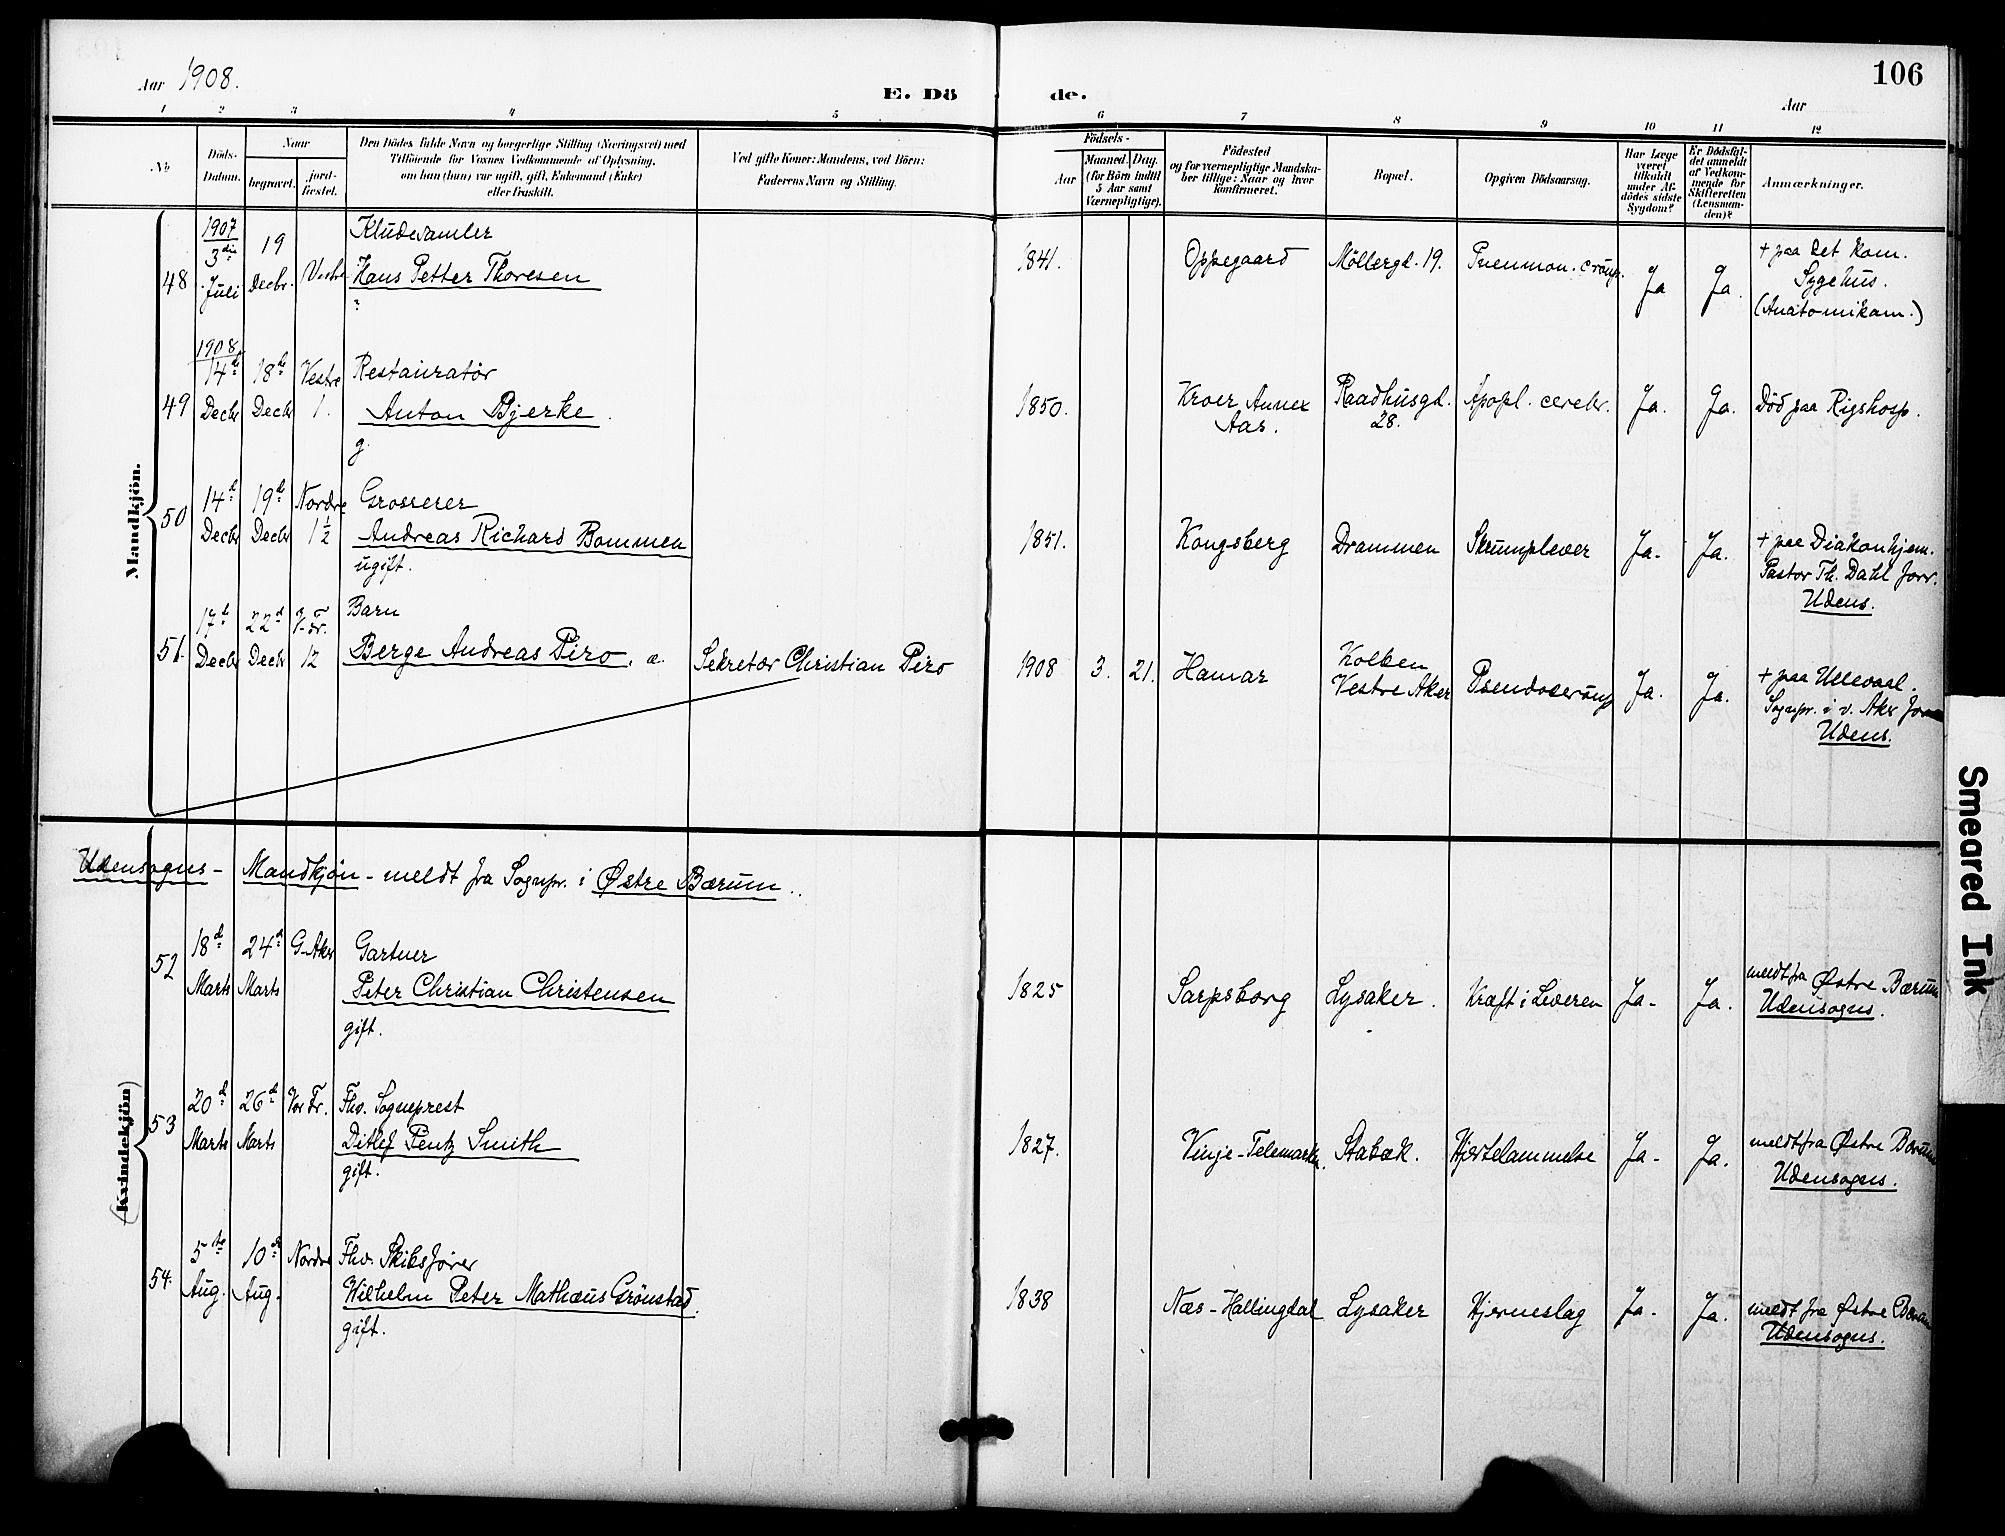 Aar 1908.
E. Dö de.
Aar
106
1 2 3 4 5 6 7 8 9 10 11 12
No
Döds-
Datum.
Naar
begravet.
jord-
fæstet.
Den Dödes fulde Navn og borgerlige Stilling (Næringsvei) med
Tilföiende for Voxnes Vedkommende af Oplysning,
om han (hun) var ugift, gift, Enkemand (Enke)
eller fraskilt.
Ved gifte Koner: Mandens, ved Börn:
Faderens Navn og Stilling.
Födsels-
Aar
Maaned. Dag.
(for Börn indtil
5 Aar samt
Værnepligtige).
Födested
og for værnepligtige Mandska-
ber tillige: Naar og hvor
konfirmeret.
Bopæl.
Opgiven Dödsaarsag.
Har Læge
været
tilkaldt
under Af-
dödes sidste
Sygdom?
Er Dödsfal-
det anmeldt
af Vedkom-
mende for
Skifteretten
(Lensman-
den)?
Anmærkninger.
Mandkjön.
48
1907
3die
Juli
19
Decbr.
Vestre
Kludesamler
Hans Petter Thoresen
?
1841.
Oppegaard
Möllergd. 19.
Pneumon. croup.
Ja
Ja.
+ paa det kom.
Sygehus.
(Anatomikam.)
49
1908
14de
Decbr
18de
Decbr
Vestre
1.
Restauratör
Anton Bjerke.
g.
1850.
Kroer Annex
Aas.
Raadhusgd.
28.
Apopl. cerebr.
Ja.
Ja.
Död paa Rigshosp.
50
14d
Decbr
19d
Decbr
Nordre
1 1/2
Grosserer
Andreas Richard Bommen
ugift.
1851.
Kongsberg
Drammen
Skrumplever
Ja.
Ja.
+ paa Diakonhjem.
Pastor Th. Dahl forr.
Udens.
51.
17d
Decbr
22d
Decbr
V. Fr.
12
Barn
Berge Andreas Piro, æ.
Sekretær Christian Piro
1908
3.
21.
Hamar
Kolben
Vestre Aker
Pseudocroup
Ja.
Ja.
+ paa Ullevaal.
Sognpr. i v. Aker
Udens.
Udensogns - Mandkjön - meldt fra Sognpr. i Østre Bærum.
(Kvindekjön)
52
18d
Marts
24d
Marts
G. Aker
Gartner
Peter Christian Christensen
gift.
1825
Sarpsborg
Lysaker.
Kræft i Leveren
Ja.
Ja.
meldt fra Østre Bærum
Udensogns.
53
20d
Marts
26d
Marts
Vor Fr.
Fhv. Sogneprest
Ditlef Pentz Smith
gift.
1827.
Vinje-Telemarken.
Stabæk.
Hjertelammelse
Ja.
Ja.
meldt fra Østre Bærum
Udensogns.
54.
5te
Aug.
10de
Aug.
Nordre
Fhv. Skibsfører
Wilhelm Peter Mathæus Grönstad.
gift.
1838
Næs-Hallingdal
Lysaker
Hjerneslag
Ja.
Ja.
meldt fra Østre Bærum
Udensogns.
Smeared Ink